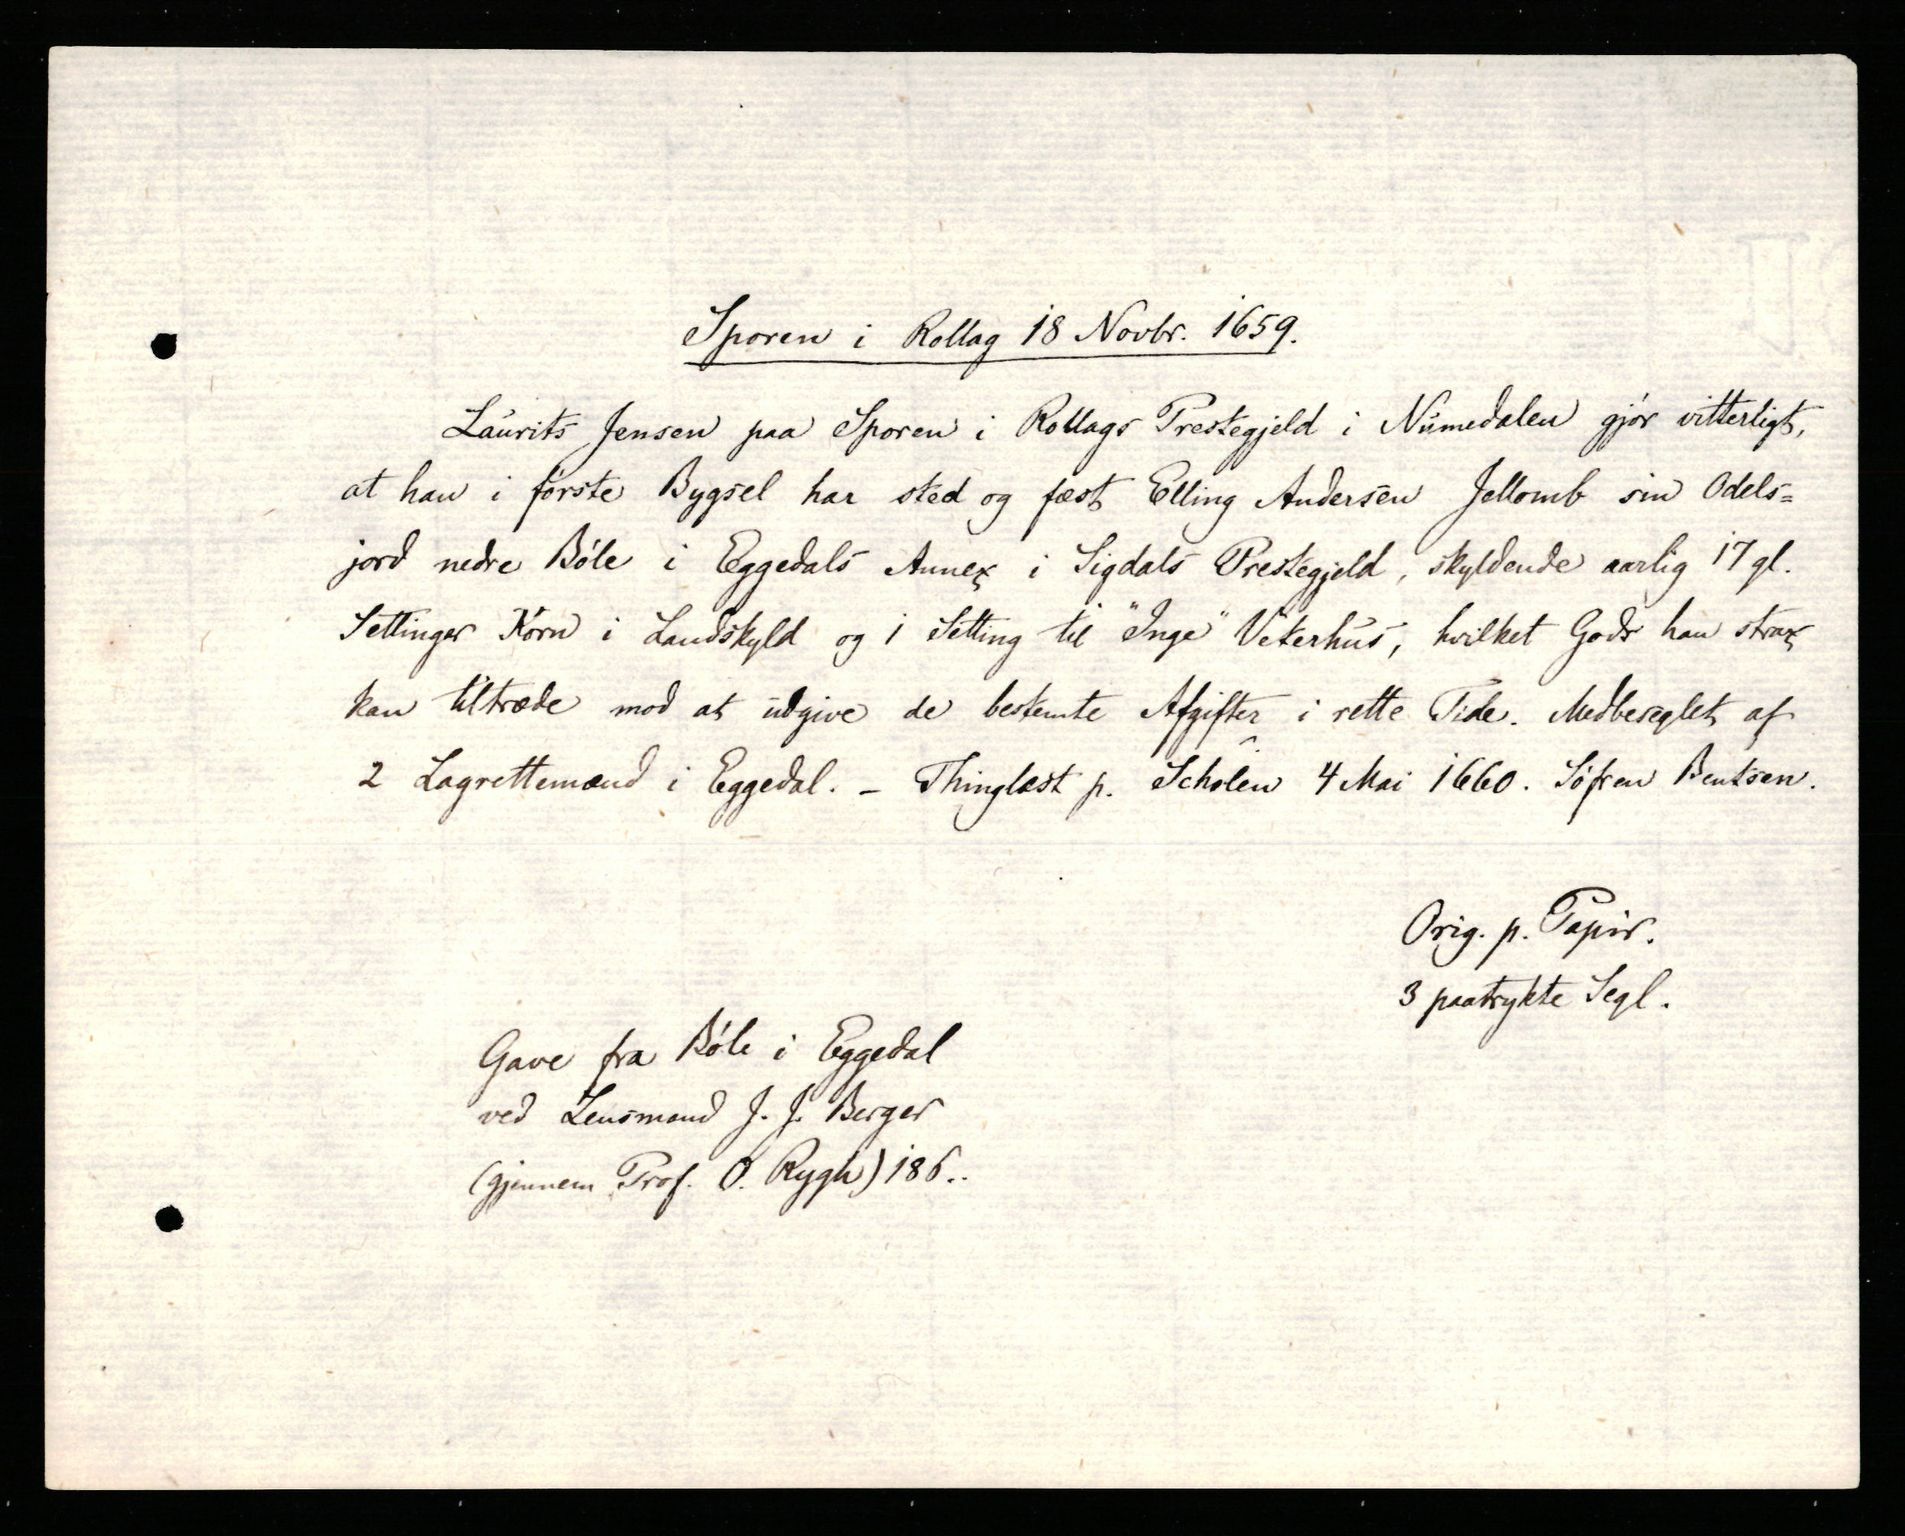 Sporen i Rollag 18 Novbr. 1659.
Laurits Jensen paa Sporen i Rollags Prestegjeld i Numedalen gjör vitterligt,
at han i förste Bygsel har sted og fæst Elling Andersen Jellomb sin Odels=
jord nedre Böle i Eggedals Annex i Sigdals Prestegjeld, skyldende aarlig 17 gl.
Settinger Korn i Landskyld og 1 Setting til "Inge" Veterhus, hvilket Gods han strax
kan tiltræde mod at udgive de bestemte Afgifter i rette Tide. Medbeseglet af
2 Lagrettemænd i Eggedal. – Thinglæst p. Scholen 4 Mai 1660. Söfren Bentsen.
Orig. p. Papir.
3 paatrykte Segl.
Gave fra Böle i Eggedal
ved Lensmand J. J. Berger
(gjennem Prof. O. Rygh) 186..